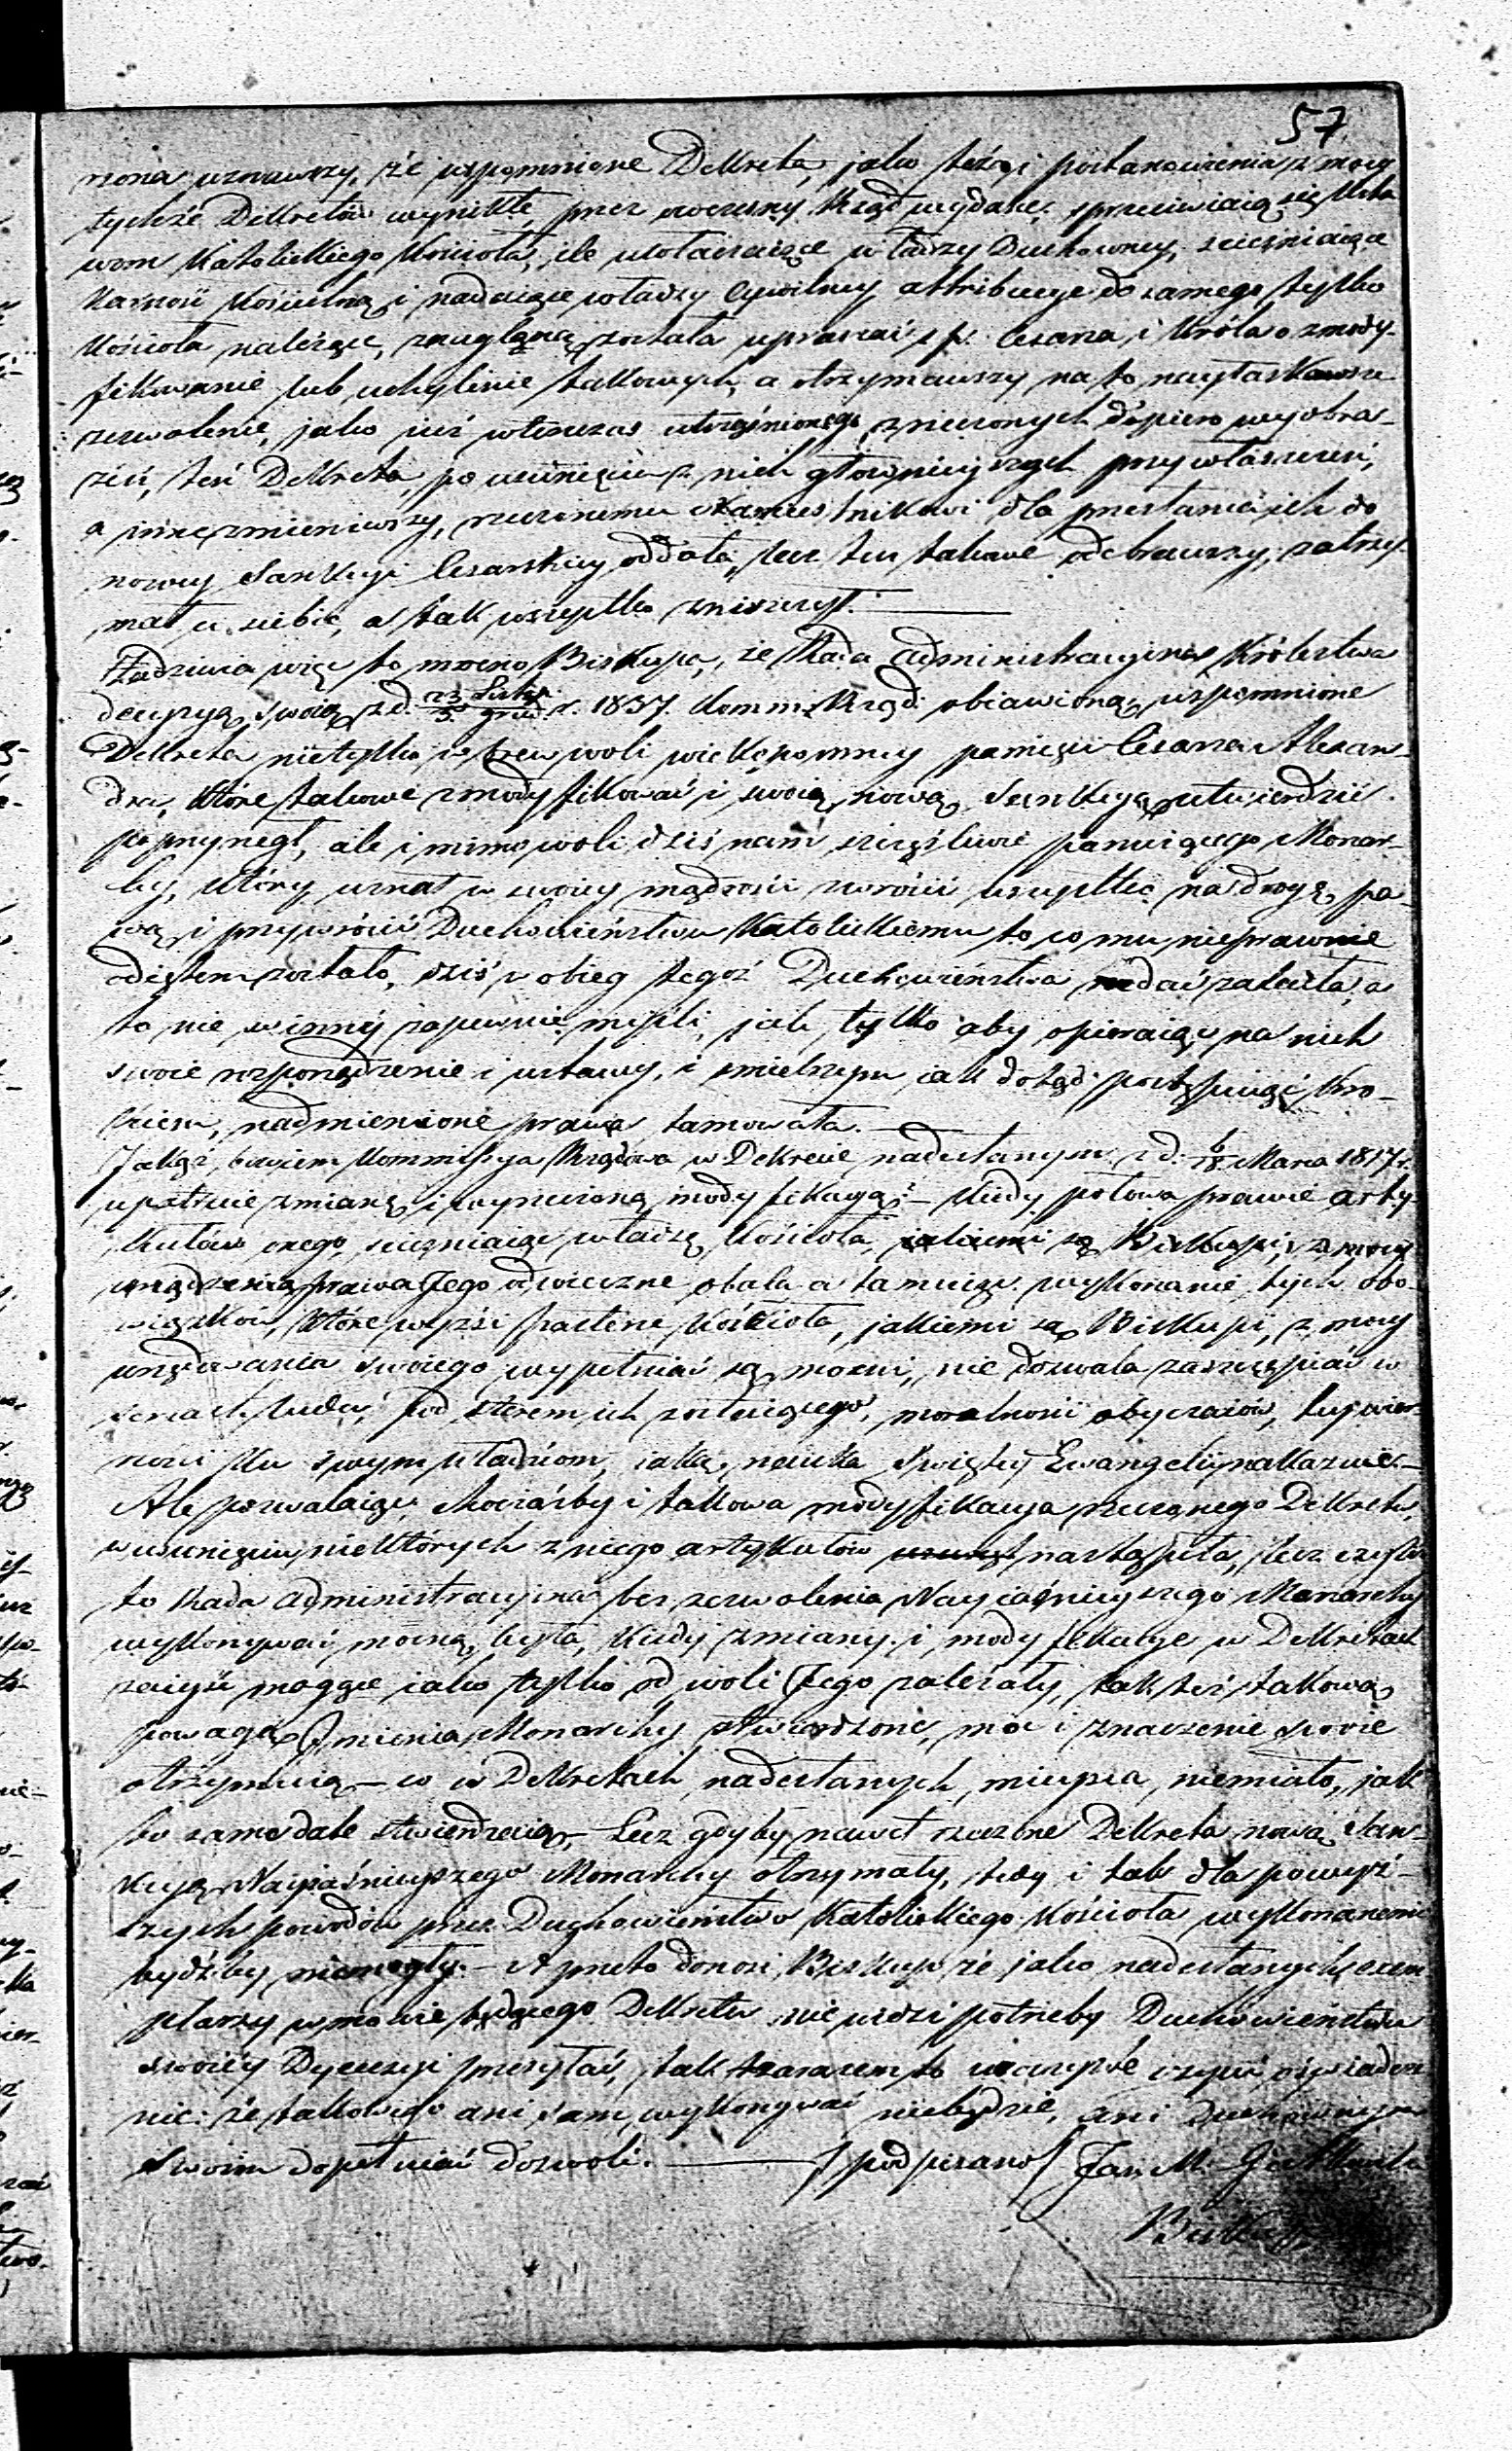 57
rzona uznawszy, że wspomnione Dekreta, jako też i postanowienia z mocy
tychże Dekretów wynikłe, przez owczesny Rząd wydane, sprzeciwiaią się Usta
wom Katolickiego Kościoła, ile uwłaczaiące władzy Duchowney, scieśniaiące
Karność Kościelną i nadaiące władzy Cywilney attribucye do samego tylko
Kościoła należące, znaglona została upraszać ś. p. Cesarza i Króla o zmody-
fikowanie lub uchylenie takowych, a otrzymawszy na to nayłaskawsze
zezwolenie, jako już wtenczas
zeń, też Dekreta, po usunięciu z nich głównieyszych przywłaszczeń,
a inne zmieniwszy, rzeczonemu Namiestnikowi dla przesłania ich do
nowey Sankcyi Cesarskiey oddała, lecz ten takowe odebrawszy, zatrzy-
mał u siebie, a tak wszystko zniszczył.
Zadziwia więc to mocno Biskupa, że Rada Administracyjna Królestwa
decyzyą swoią z d. 23 Listop./5 grud. r. 1837. Komm. Rząd. obiawioną, wspomnione
Dekreta nietylko wbrew woli wiekopomney pamięci Cesarza Alexan-
dra, które takowe zmodyfikować i swoią nową Sankcyą utwierdzić
przyrzegł, ale i mimo woli dziś nam szczęśliwie panuiącego Monar-
chy, który uznał w swoiey mądrości zwrócić wszystko na drogę pra-
wą i przywrócić Duchowieństwu Katolickiemu to, co mu nieprawnie
odiętem zostało, dziś w obieg tegoż Duchowieństwa nadać zaleciła, a
to nie w inney zapewnie myśli, jak tylko aby opieraiąc na nich
swoie rozporządzenie i ustawy, i smielszym iak dotąd postępuiąc kro-
kiem, nadmienione prawa tamowała.
Jakąż, bowiem Kommissya Rządowa w Dekrecie nadesłanym z d. 6/18 Marca 1817 r.
upatruie zmianę i wyrzeczoną modyfikacyą? – Kiedy połowa prawie arty-
kułów onego, scieśniaiąc władzę Kościoła, jakiemi są Biskupi, z mocy
urządzenia prawa Jego odwieczne obala a tamuiąc wykonanie tych obo-
wiązków, które wyżsi Pasterze Kościoła, jakiemi są Biskupi, z mocy
urzędowania swoiego wypełniać są mocni, nie dozwala zaszczepiać w
sercach ludu, pod sterem ich zostaiącego, moralności obyczaiów, tuż wier-
ności ku swym władzom, iaką nauka Świętey Ewangelii nakazuie. –
Ale pozwalaiąc, chociażby i takowa modyfikacya rzeczonego Dekretu,
w usunięciu niektórych z niego artykułów nastąpiła, lecz czyliż
to Rada Administracyjna bez zezwolenia Nayiaśnieyszego Monarchy
wykonywać mocną była, kiedy zmiany i modyfikacye w Dekretach
zaiyść mogące iako tylko od woli Jego zależały, tak też takową
powagą Imienia Monarchy stwierdzone, moc i znaczenie swoie
otrzymuią – co w Dekretach nadesłanych, mieysca niemiało, jak
to same daty stwierdzaią. – Lecz gdyby nawet rzeczone Dekreta nową San-
kcyą Nayiaśnieyszego Monarchy otrzymały, tedy i tak dla powyż-
szych powodów przez Duchowieństwo Katolickiego Kościoła wykonanemi
bydźby niemogły. – A przeto donosi Biskup że jako nadesłanych exem
plarzy w mowie będącego Dekretu nie widzi potrzeby Duchowieństwu
swoiey Dyecezyi przesyłać, tak zarazem to iawnie czyni oświadcze
nie: że takowego ani sam wykonywać niebędzie, ani Duchownym
swoim dopełniać dozwoli. ——— /podpisano/ Jan M. Gutkowski
Biskup